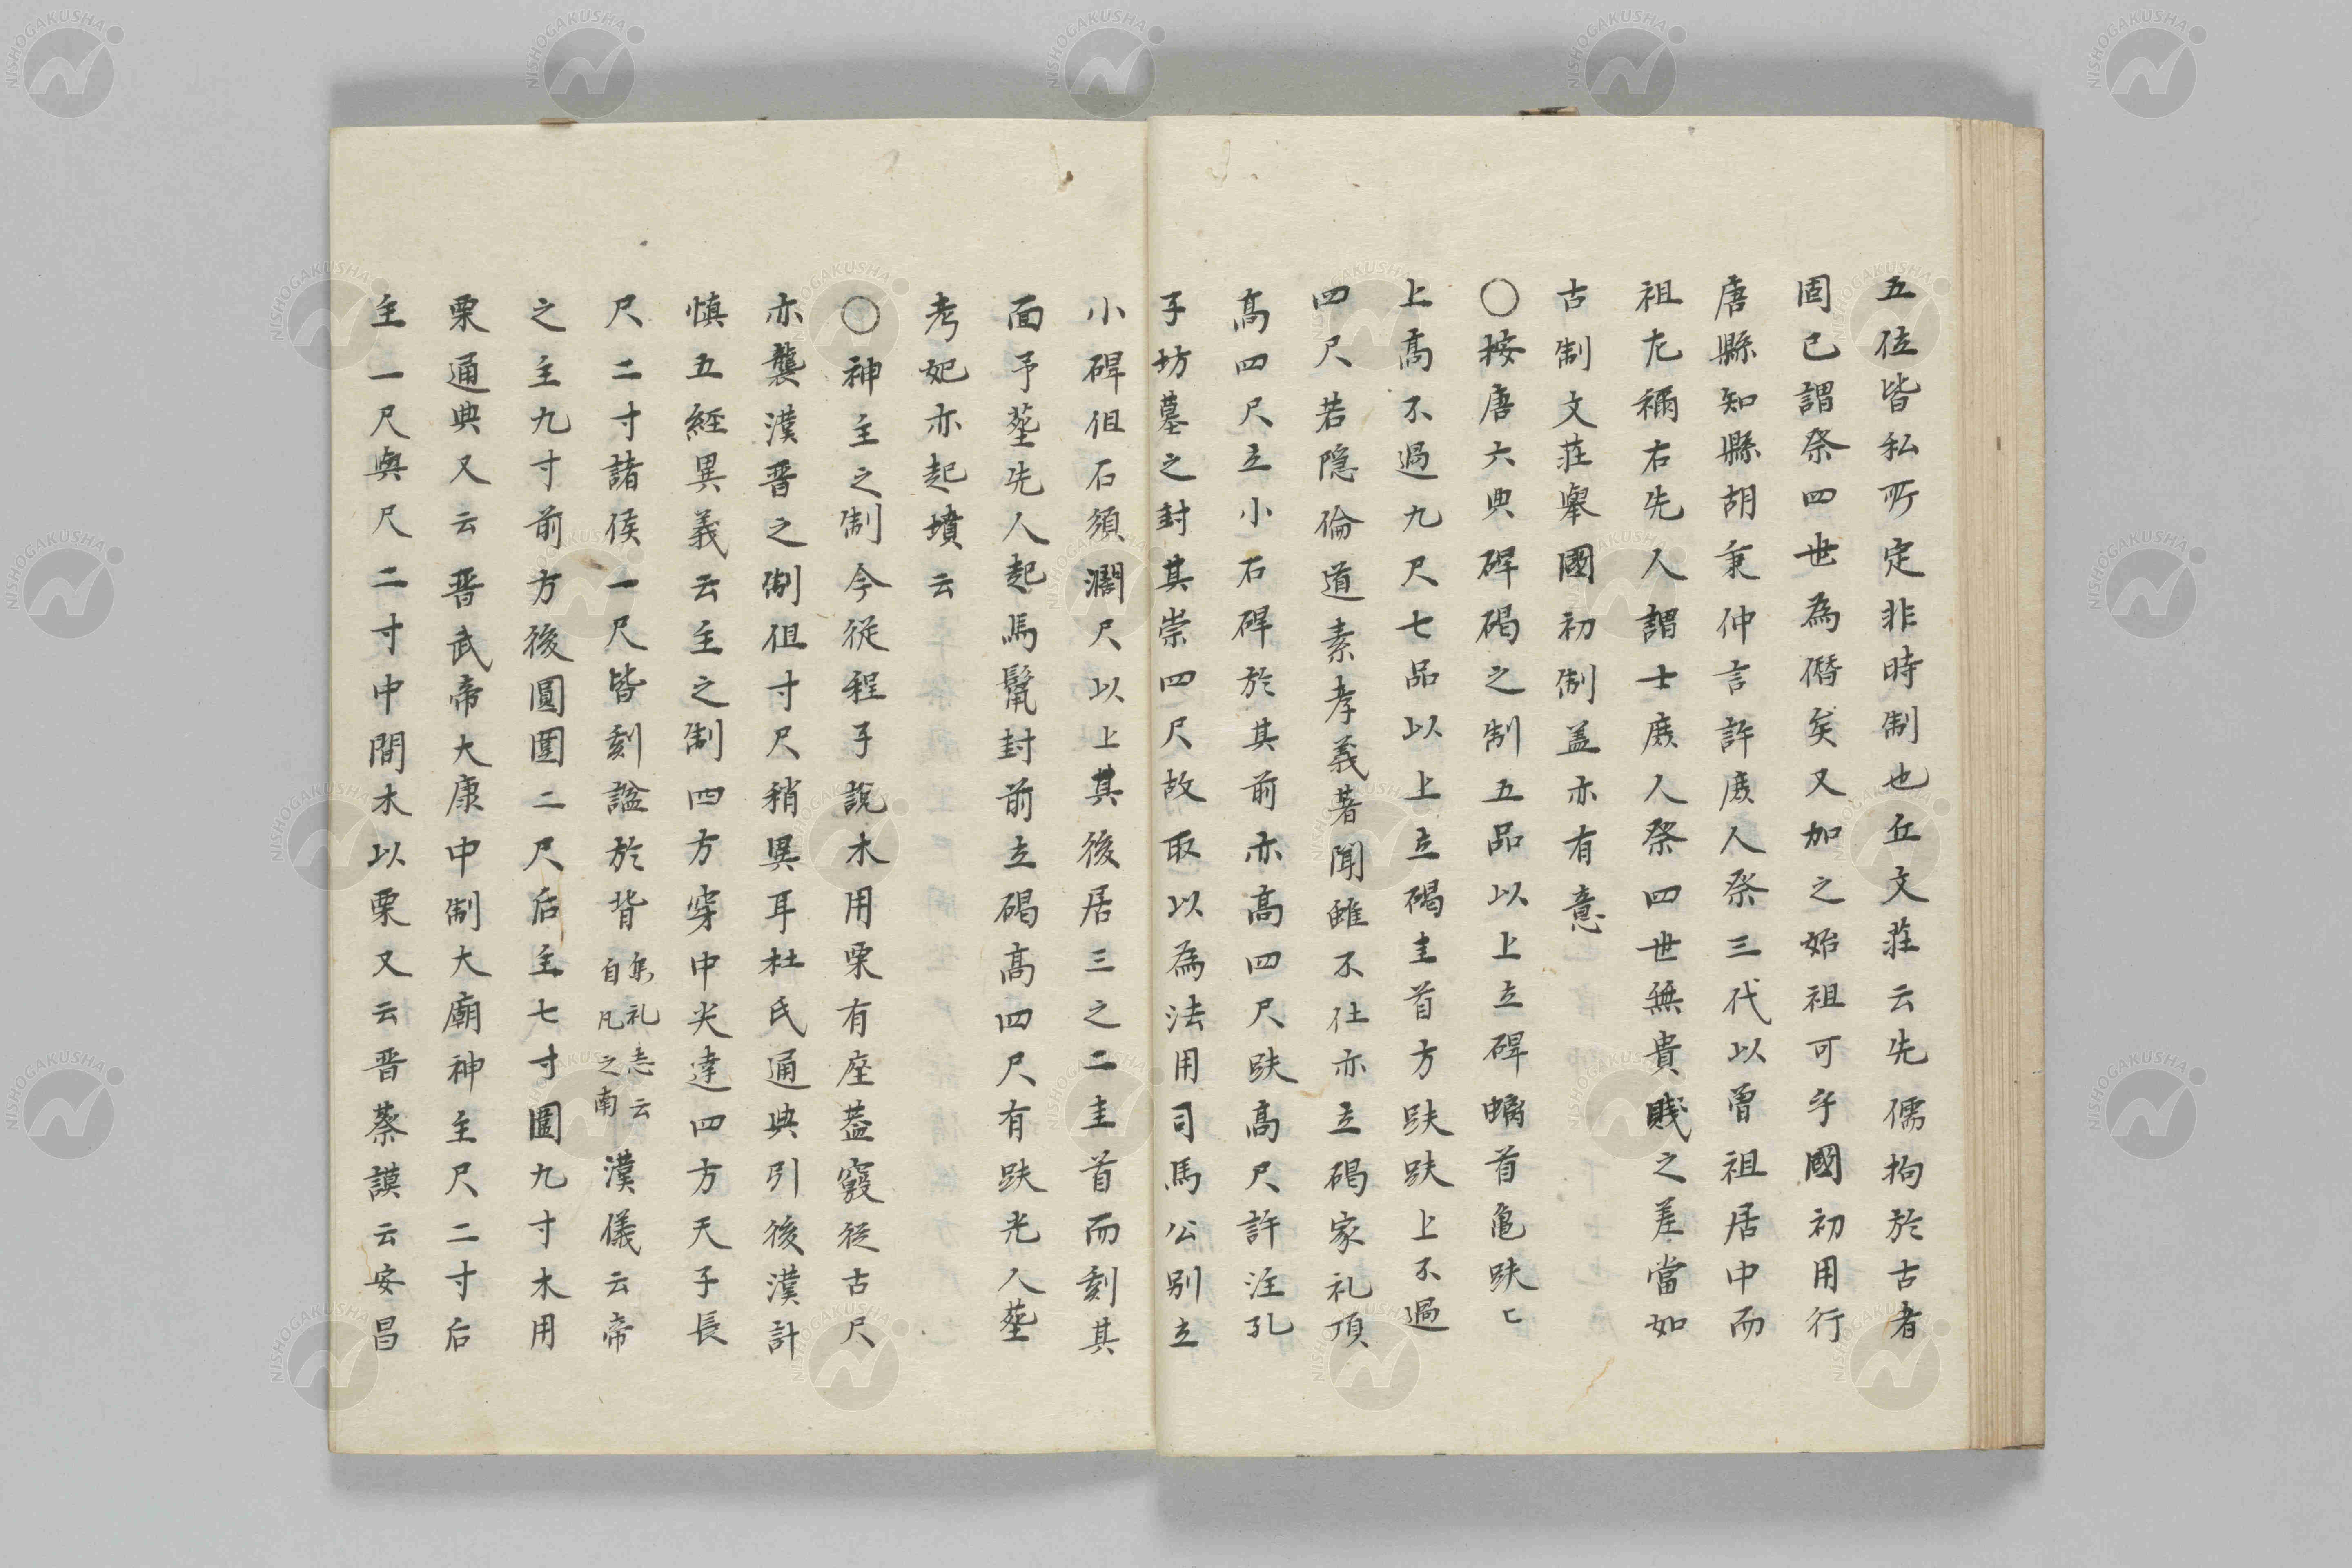 五位皆私所定非時制也丘文莊云先儒拘於古者
固已謂祭四世為僭矣又加之始祖可乎國初用行
唐縣知縣胡秉仲言許庶人祭三代以曽祖居中而
祖左禰右先人謂士庶人祭四世無貴賤之差當如
古制文莊舉國初制盖亦有意
○按唐六典碑碣之制五品以上立碑螭首亀趺上
上高不過九尺七品以上立碣圭首方趺趺上不過
四尺若隠倫道素孝義著聞雖不仕亦立碣家礼頂
高四尺立小石碑於其前亦高四尺趺高尺許注孔
子坊墓之封其崇四尺故取以為法用司馬公別立
小碑但石須濶尺以上其後居三之二圭首而刻其
面予塟先人起馬鬣封前立碣高四尺有趺光人塟
考妃亦起墳云
○神主之制今從程子說木用栗有座葢竅從古尺
亦襲漢晋之制但寸尺稍異耳杜氏通典引後漢許
慎五經異義云主之制四方穿中央達四方天子長
尺二寸諸侯一尺皆刻諡於背集礼志云自凡之南漢儀云帝
之主九寸前方後圓圍二尺后主七寸圍九寸木用
栗通典又云晋武帝大康中制大廟神主尺二寸后
主一尺與尺二寸中間木以栗又云晋蔡謨云安昌
NISHOGAKUSHA